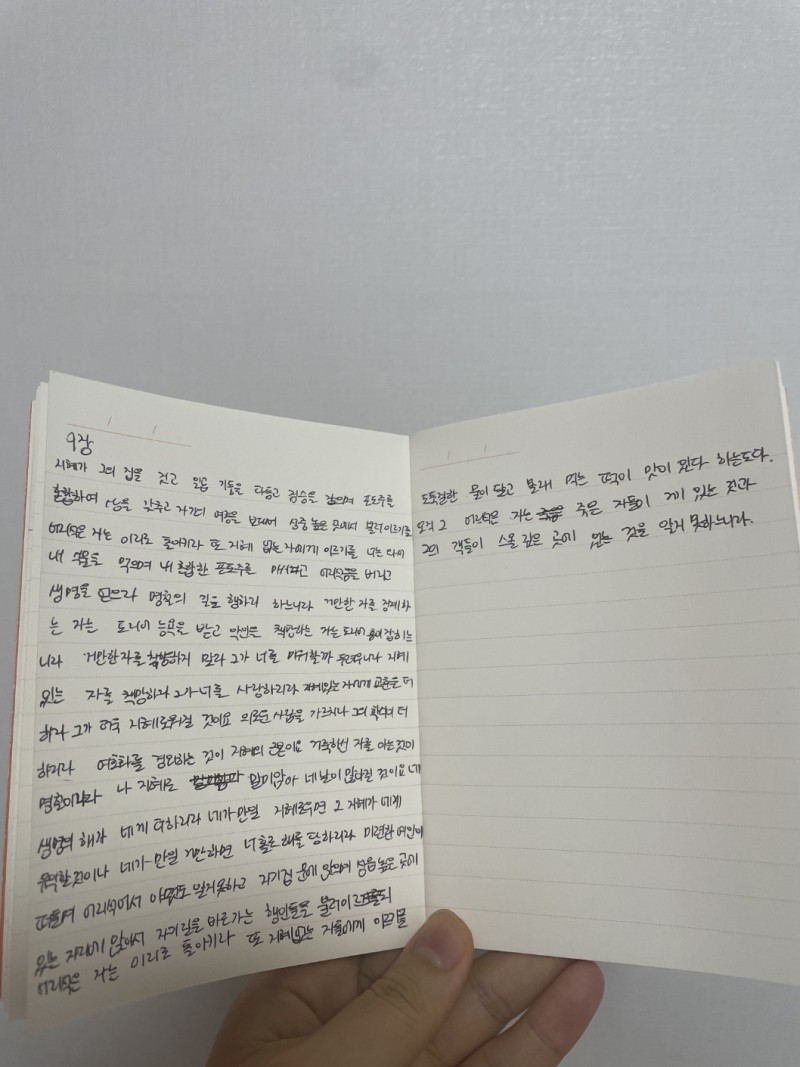 9장
지혜가 그의 집을 짓고 일곱 기둥을 다듬고 짐승을 잡으며 포도주를
혼합하여 상을 갖추고 자기의 여종을 보내어 성중 높은 곳에서 불러 이르기를
어리석은 자는 이리로 돌이키라 또 지혜 없는 자에게 이르기를 너는 와서
내 식물을 먹으며 내 혼합한 포도주를 마시고 어리석음을 버리고
생명을 얻으라 명철의 길을 행하라 하느니라 거만한 자를 징계하
는 자는 도리어 능욕을 받고 악인을 책망하는 자는 도리어 흠이 잡히느
니라 거만한 자를 책망하지 말라 그가 너를 미워할까 두려우니라 지혜
있는 자를 책망하라 그가 너를 사랑하리라 지혜있는 자에게 교훈을 더
하라 그가 더욱 지혜로워질 것이요 의로운 사람을 가르치라 그의 학식이 더
하리라 여호와를 경외하는 것이 지혜의 근본이요 거룩하신 자를 아는 것이
명철이니라 나 지혜로 말미암아 네 날이 많아질 것이요 네
생명의 해가 네게 더하리라 네가 만일 지혜로우면 그 지혜가 네게
유익할 것이나 네가 만일 거만하면 너 홀로 해를 당하리라 미련한 여인이
떠들며 어리석어서 아무것도 알지 못하고 자기 집 문에 앉으며 성읍 높은 곳에
있는 자리에 앉아서 자기 길을 바로 가는 행인들을 불러 이르되
어리석은 자는 이리로 돌이키라 또 지혜 없는 자들에게 이르기를
도둑질한 물이 달고 몰래 먹는 떡이 맛이 있다 하는도다.
오직 그 어리석은 자는 죽은 자들이 거기 있는 것과
그의 객들이 스올 깊은 곳에 있는 것을 알지 못하느니라.